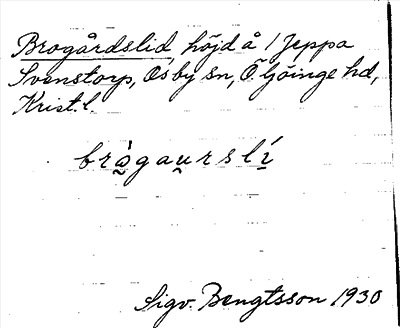 Brogårdslid, höjd å 1 Jeppa
Svenstorp, Osby sn, Ö. Göinge hd,
Krist. l.
bràgau̯rslí
Sigv. Bengtsson 1930